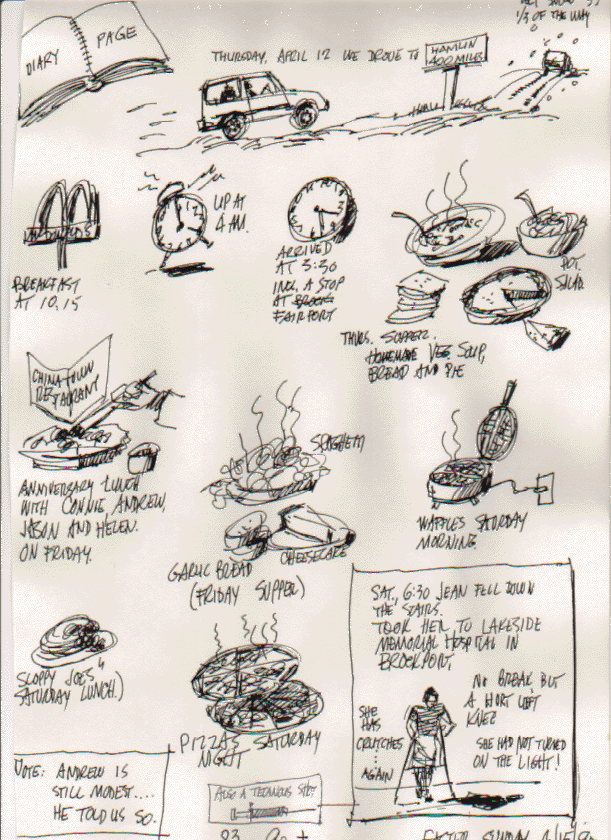 1/3 OF THE WAY
DIARY
PAGE
THURSDAY, APRIL 12 WE DROVE TO
HAMLIN
400 MILES
BREAKFAST
AT 10.15
UP AT
4 AM.
ARRIVED
AT 3:30
INCL. A STOP
AT
FAIRPORT
POT.
SALAD.
THURS. SUPPER.
HOMEMADE VEG SOUP,
BREAD AND PIE
CHINA TOWN
RESTAURANT
ANNIVERSARY LUNCH
WITH CONNIE, ANDREW,
JASON AND HELEN.
ON FRIDAY.
SPAGHETTI
CHEESECAKE
GARLIC BREAD
(FRIDAY SUPPER)
WAFFLES SATURDAY
MORNING.
SLOPPY JOES
SATURDAY LUNCH.)
PIZZAS SATURDAY
NIGHT
SAT, 6:30 JEAN FELL DOWN
THE STAIRS.
TOOK HER TO LAKESIDE
MEMORIAL HOSPITAL IN
BROCKPORT
NO BREAK, BUT
A HURT LEFT
KNEE
SHE
HAS
CRUTCHES
....
AGAIN
SHE HAD NOT TURNED
ON THE LIGHT!
NOTE: ANDREW IS
STILL MODEST....
HE TOLD US SO.
ALSO A
SUNDAY